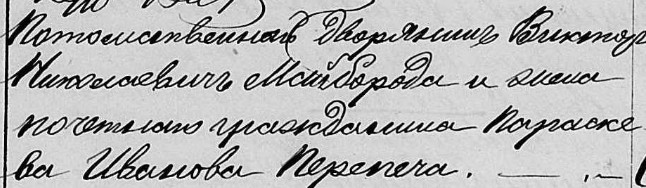 Потомственный дворянинъ Виктор
Николаевичъ Майборода и жена
почетнаго гражданина Параске
ва Иванова Перепеча.